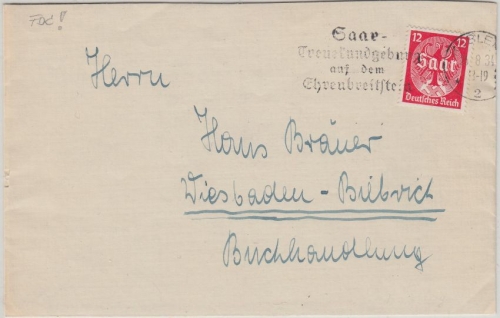 FDC!
Saar-
Treuekundgebung
auf dem
Ehrenbreitstein
12 12
Saar
Deutsches Reich
8.3
18-19
2
Herrn
Hans Bräuer
Wiesbaden-Biebrich
Buchhandlung